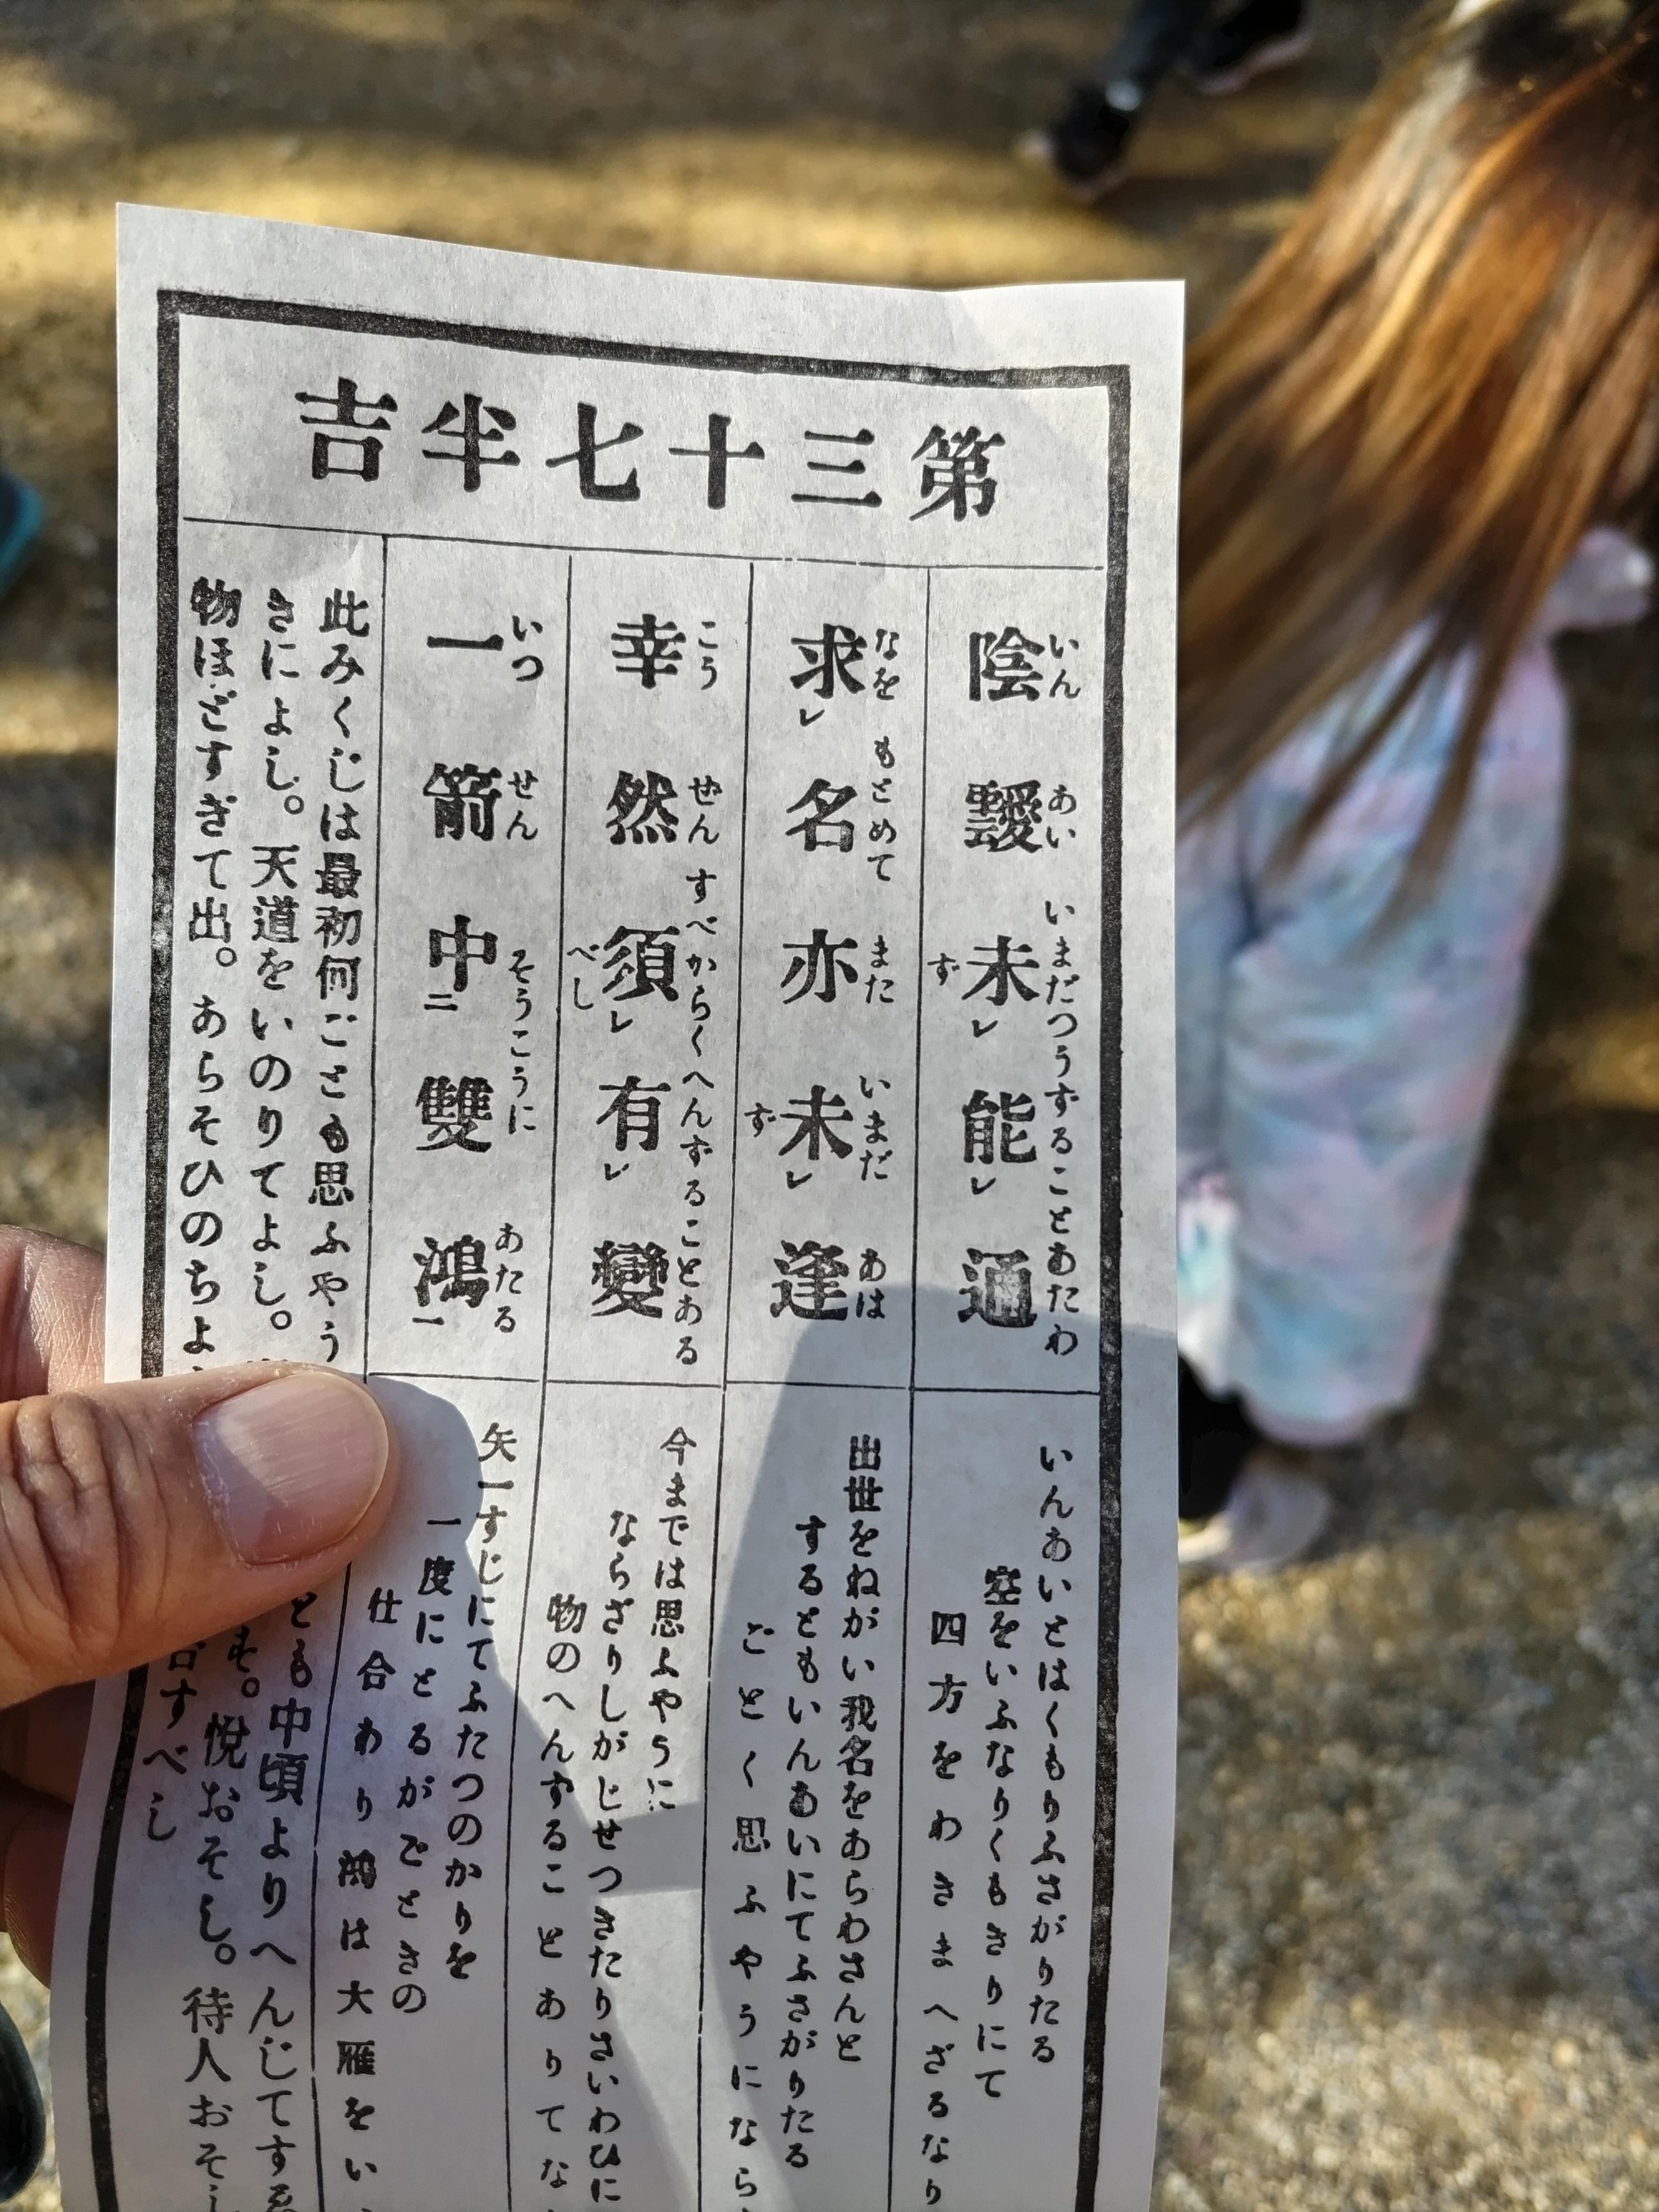 第三十七半吉
陰靉未レ能レ通
いんあいいまだつうずることあたわ
ず
求レ名亦未レ逢
なをもとめてまたいまだあは
ず
幸然須レ有レ變
こうぜんすべからくへんずることある
べし
一箭中二雙鴻一
いつせんそうこうにあたる
いんあいとはくもりふさがりたる
空をいふなりくもきりにて
四方をわきまへざるなり
出世をねがい我名をあらわさんと
するともいんあいにてふさがりたる
ごとく思ふやうになら
今までは思ふやうに
ならざりしがじせつきたりさいわひに
物のへんずることありてな
矢一すじにてふたつのかりを
一度にとるがごときの
仕合わり鴻は大雁をい
此みくじは最初何ごとも思ふやう
とも中頃よりへんじてすゑ
きによし。天道をいのりてよし。
そ。悦おそし。待人おそし
物ほどすぎて出。あらそひのちよ
すべし